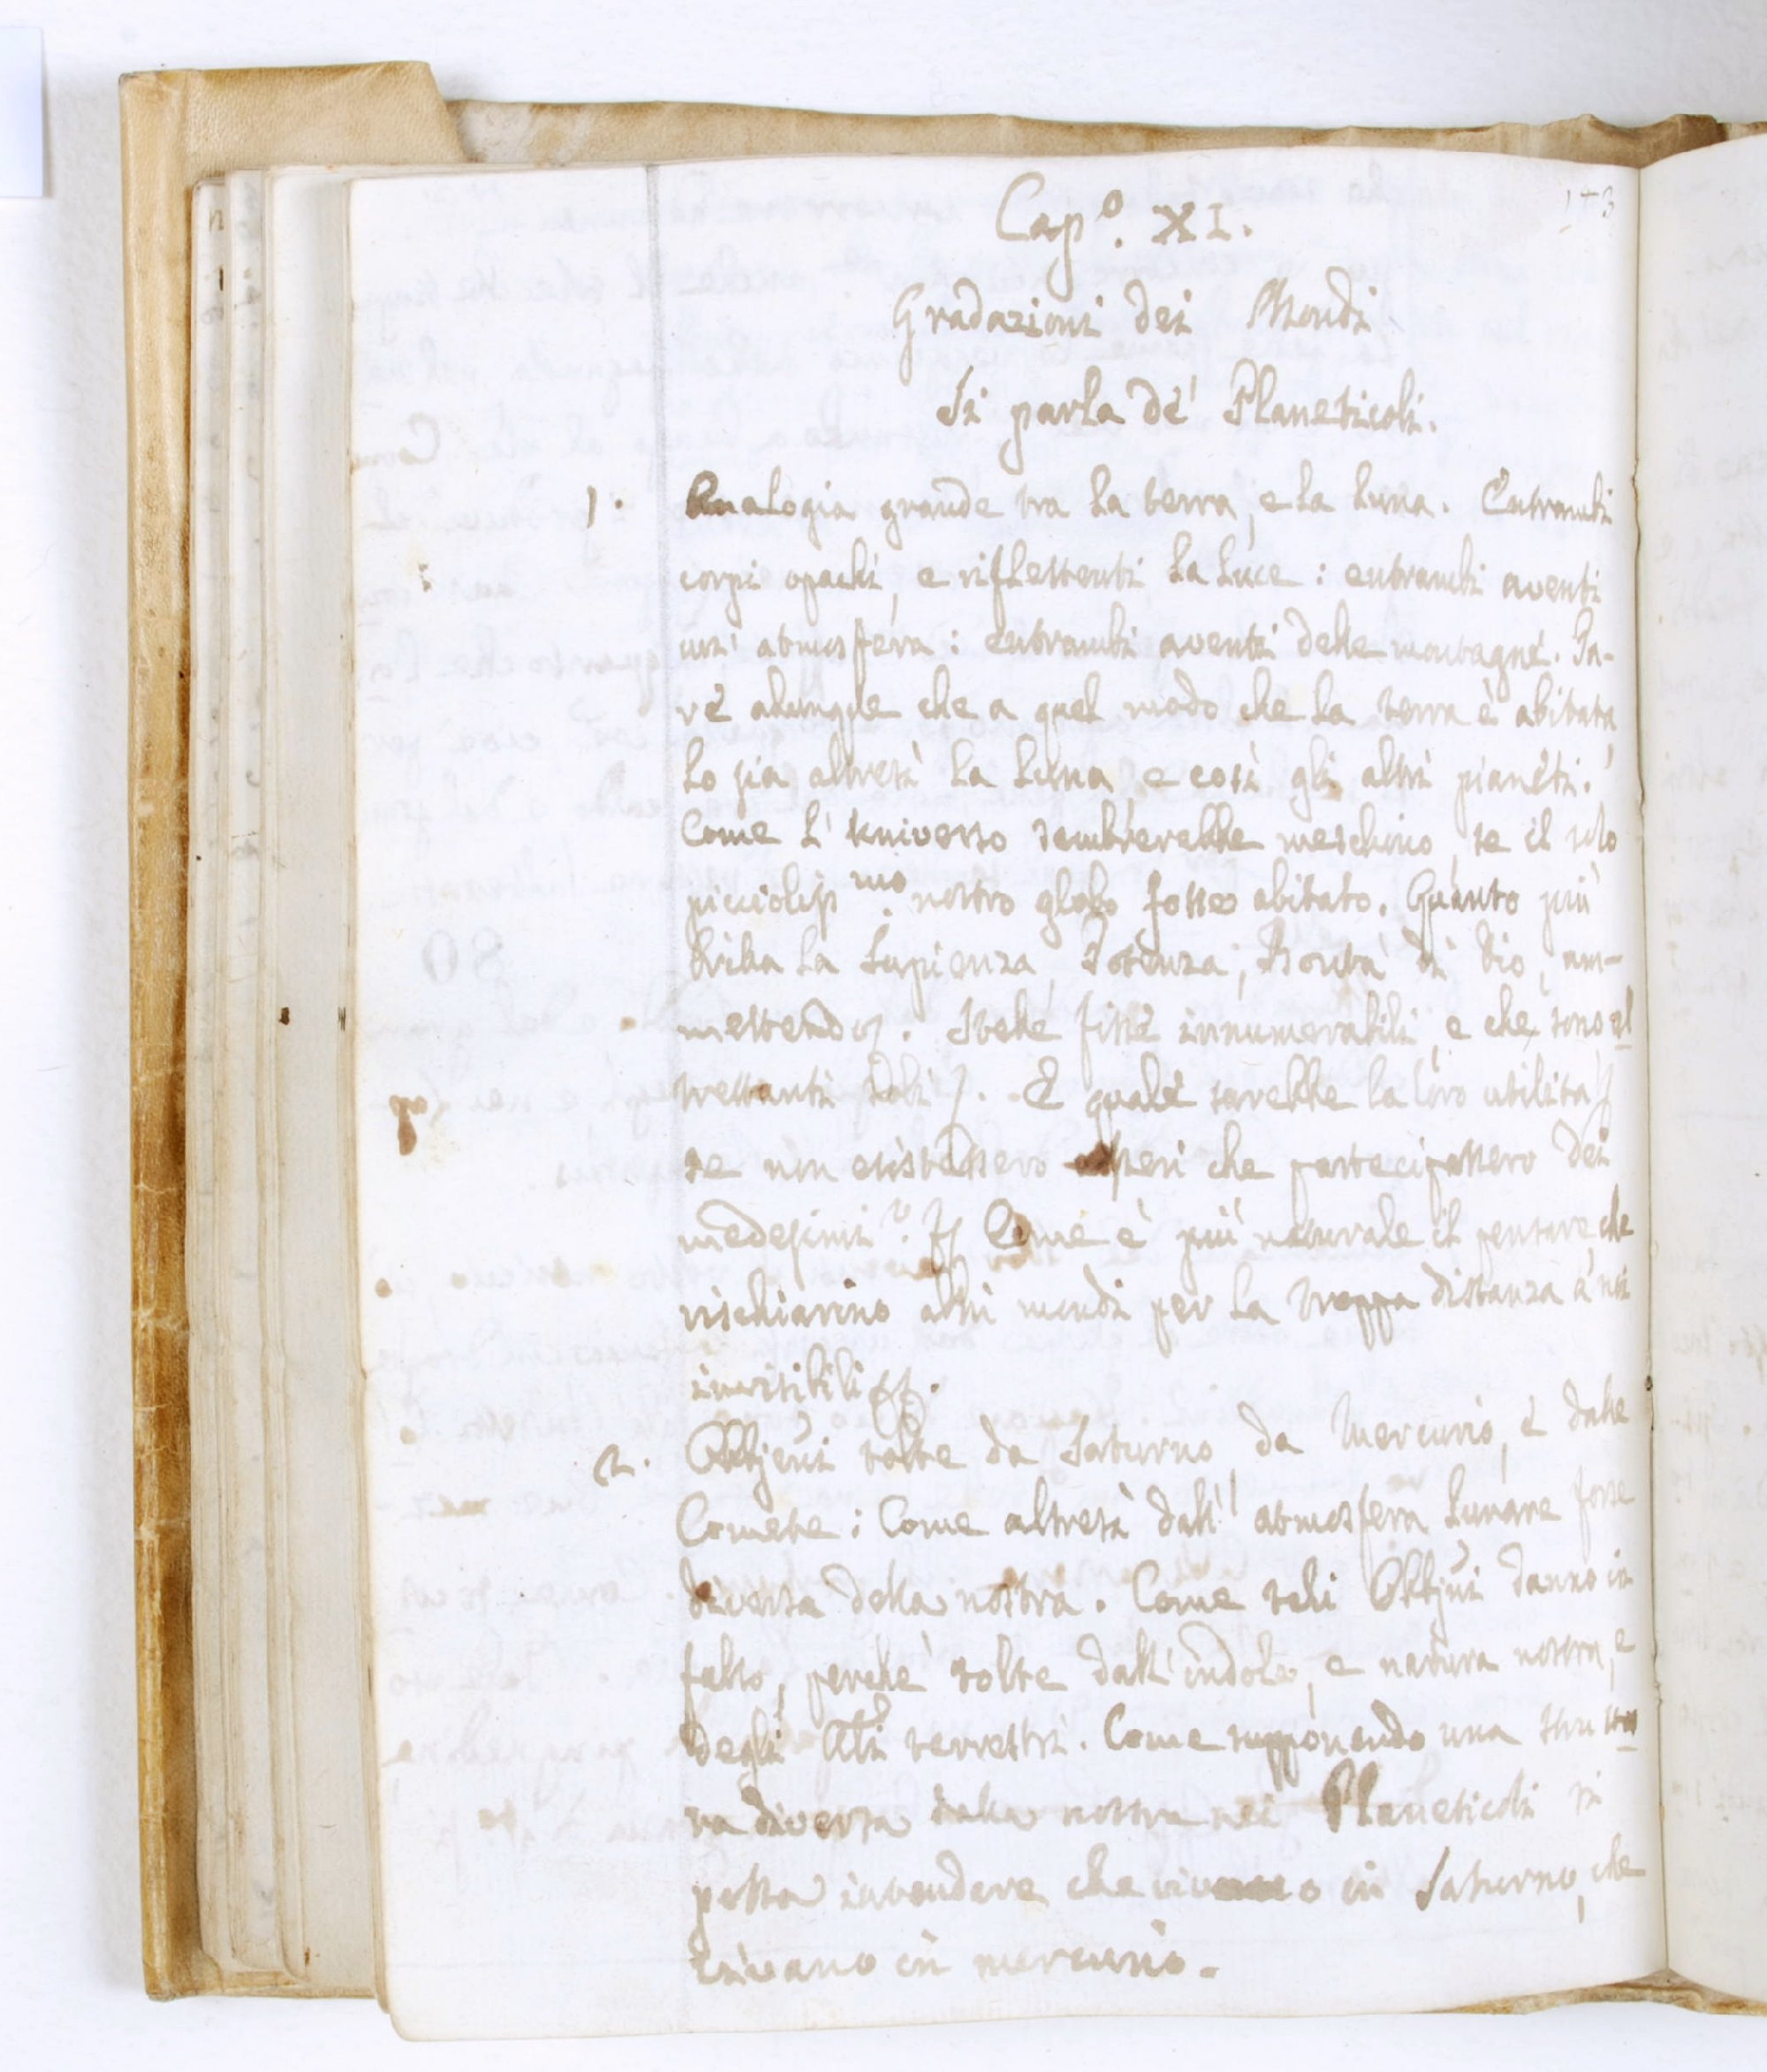 143
Cap.º XI.
Gradazioni dei Mondi
Si parla de' Planeticoli.
1. Analogia grande tra la terra, e la Luna. Entrambi
corpi opachi, e riflettenti la luce: entrambi aventi
un' atmosfera: entrambi aventi delle montagne. Pa-
re adunque che a quel modo che la terra è abitata,
lo sia altresì la Luna, e così gli altri pianeti.
Come l' universo sembrerebbe meschino, se il solo
piccoliss.mo nostro globo fosse abitato. Quanto più
brilla la Sapienza, Potenza, Bontà di Dio, am-
mettendo. Stelle fisse innumerabili, e che sono al
trettanti Soli. E quale sarebbe la loro utilità
se non esistessero esseri che partecipassero dei
medesimi? Come è più naturale il pensare, che
rischiarino altri mondi per la troppa distanza a noi
invisibili.
2. Obbjeni tolte da Saturno, da Mercurio, e dalle
Comete: Come altresì dall' atmosfera Lunare forse
diversa della nostra. Come tali Obbjni danno in
falso, perchè tolte dall' indole, e natura nostra, e
degli terrestri. Come supponendo una strut
ra diversa dalla nostra nei Planeticoli si
possa intendere che vivano in Saturno, che
vivano in mercurio.